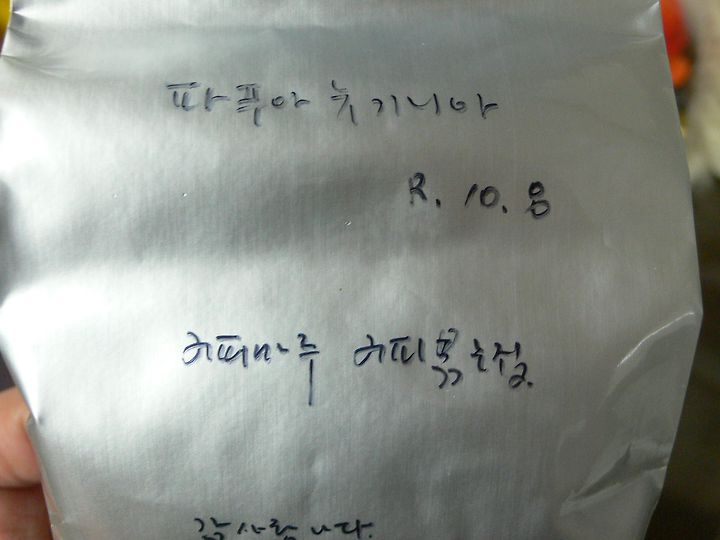 파푸아 뉴기니아
R. 10. 8
커피마루 커피볶는집.
감사합니다.